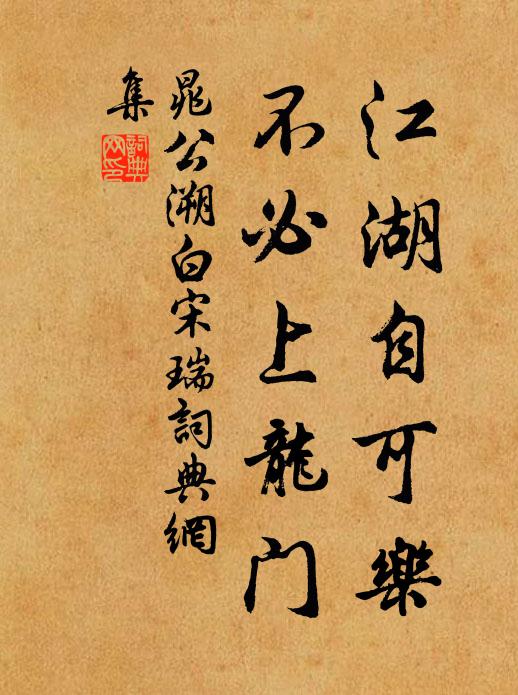 江湖自可樂
不必上龍门
晁公溯白宋瑞詞典網
集
詞典
网印